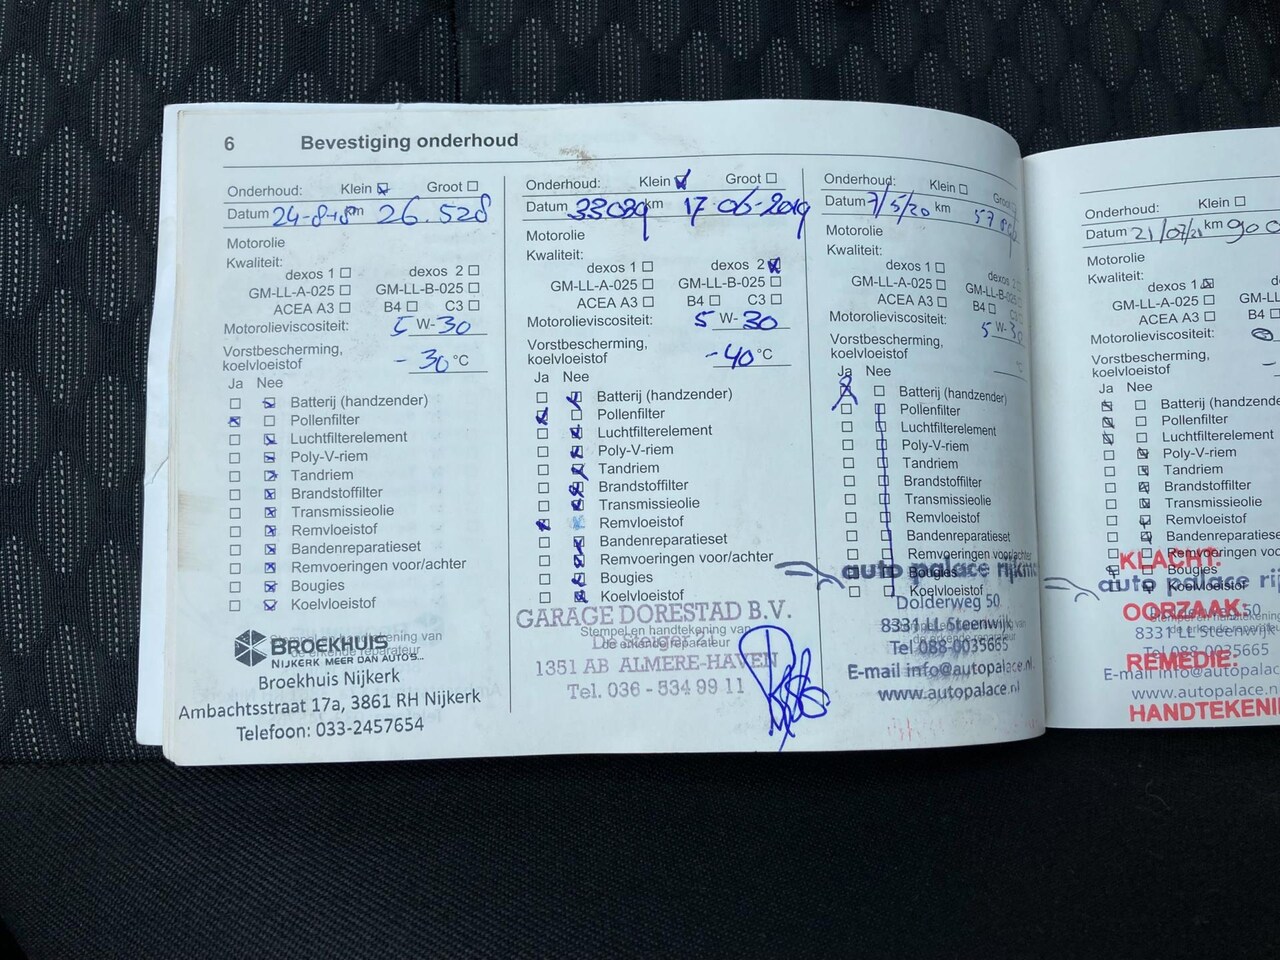 6 Bevestiging onderhoud
Onderhoud: Klein Groot
Datum 24-8-18 km 26.528
Motorolie
Kwaliteit:
dexos 1 dexos 2
GM-LL-A-025 GM-LL-B-025
ACEA A3 B4 C3
Motorolieviscositeit: 5 W-30
Vorstbescherming,
koelvloeistof -30 °C
Ja Nee
Batterij (handzender)
Pollenfilter
Luchtfilterelement
Poly-V-riem
Tandriem
Brandstoffilter
Transmissieolie
Remvloeistof
Bandenreparatieset
Remvoeringen voor/achter
Bougies
Koelvloeistof
Stempel en handtekening van
de erkende reparateur
BROEKHUIS
NIJKERK MEER DAN AUTO'S...
Broekhuis Nijkerk
Ambachtsstraat 17a, 3861 RH Nijkerk
Telefoon: 033-2457654
Onderhoud: Klein Groot
Datum 33089 km 17-06-2019
Motorolie
Kwaliteit:
dexos 1 dexos 2
GM-LL-A-025 GM-LL-B-025
ACEA A3 B4 C3
Motorolieviscositeit: 5 W-30
Vorstbescherming,
koelvloeistof -40 °C
Ja Nee
Batterij (handzender)
Pollenfilter
Luchtfilterelement
Poly-V-riem
Tandriem
Brandstoffilter
Transmissieolie
Remvloeistof
Bandenreparatieset
Remvoeringen voor/achter
Bougies
Koelvloeistof
GARAGE DORESTAD B.V.
Stempel en handtekening van
de erkende reparateur
De Steiger 21
1351 AB ALMERE-HAVEN
Tel. 036 - 534 99 11
Onderhoud: Klein Groot
Datum 7/5/20 km 57
Motorolie
Kwaliteit:
dexos 1 dexos
GM-LL-A-025 GM-LL-B-025
ACEA A3 B4 C3
Motorolieviscositeit: 5 W-30
Vorstbescherming,
koelvloeistof °C
Ja Nee
Batterij (handzender)
Pollenfilter
Luchtfilterelement
Poly-V-riem
Tandriem
Brandstoffilter
Transmissieolie
Remvloeistof
Bandenreparatieset
Remvoeringen voor/achter
Bougies
Koelvloeistof
auto palace
Dolderweg 50
8331 LL Steenwijk
de erkende reparateur
Tel 088-0035665
E-mail info@autopalace.nl
www.autopalace.nl
Onderhoud: Klein
Datum 21/07/21 km
Motorolie
Kwaliteit:
dexos 1
GM-LL-A-025 GM-LL
ACEA A3 B4
Motorolieviscositeit:
Vorstbescherming,
koelvloeistof
Ja Nee
Batterij (handzende
Pollenfilter
Luchtfilterelement
Poly-V-riem
Tandriem
Brandstoffilter
Transmissieolie
Remvloeistof
Bandenreparatieset
Remvoeringen voo
Bougies
Koelvloeistof
KLACHT:
auto palace rij
OORZAAK:
50
8331 LL Steenwijk
Tel 088-0035665
REMEDIE:
E-mail info@autopalace
www.autopalace.n
HANDTEKENI